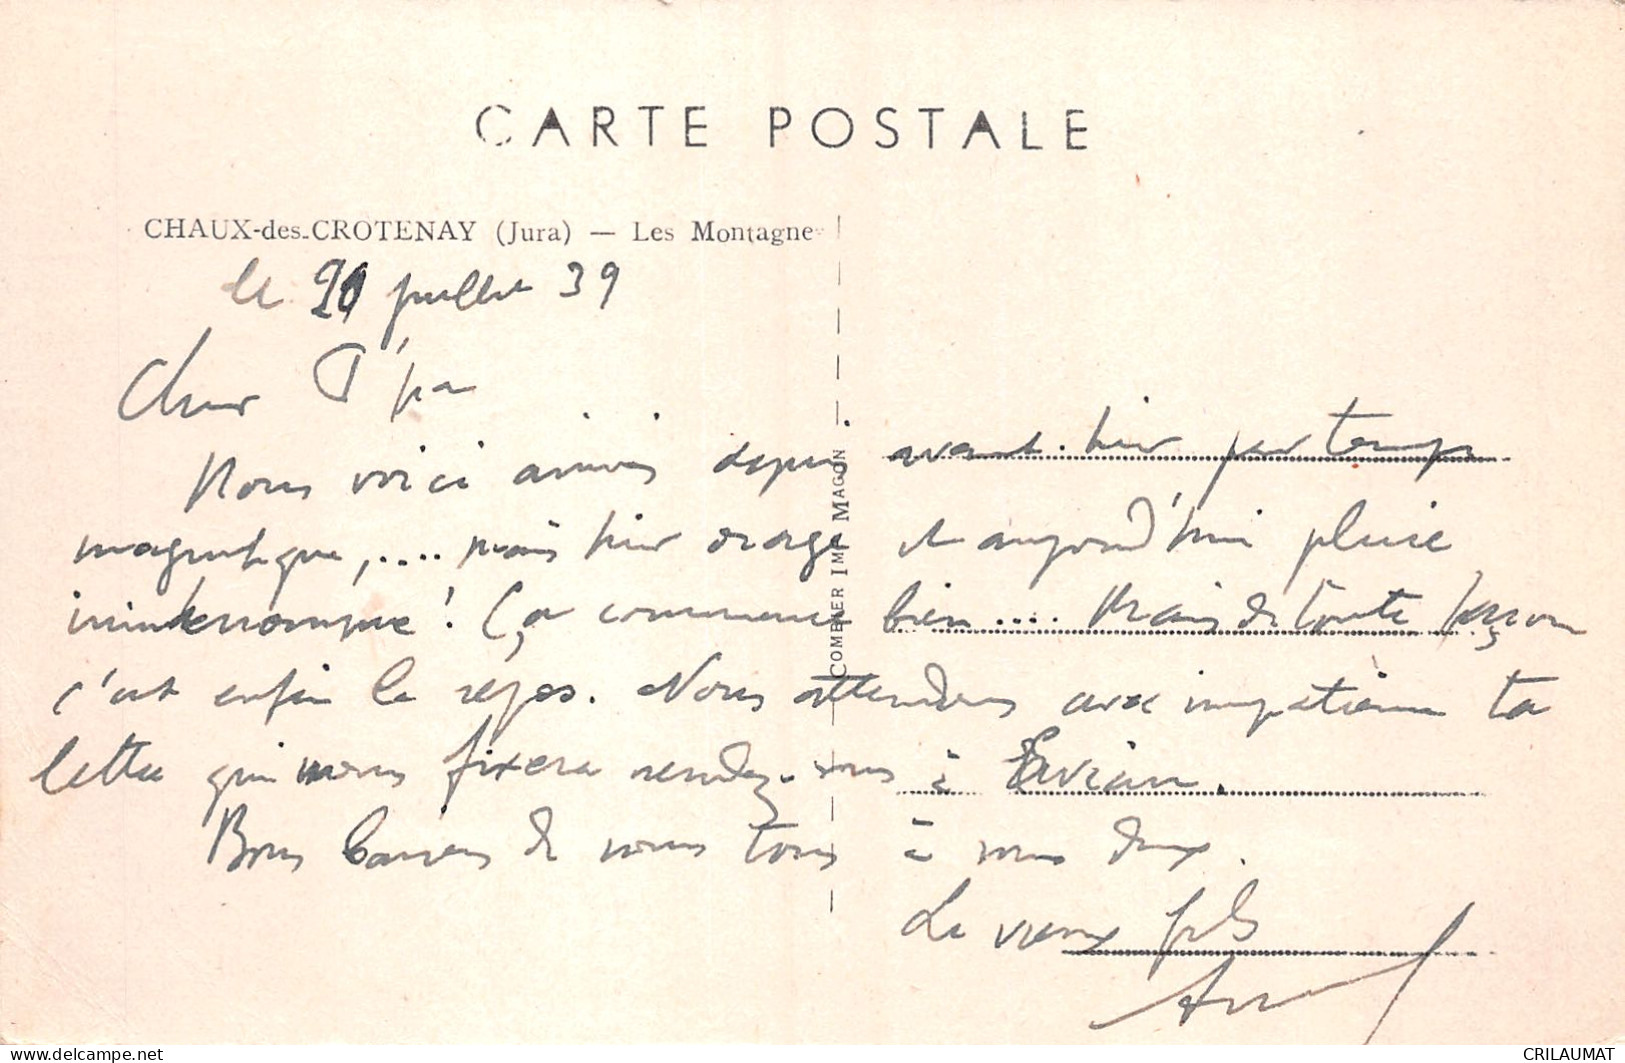 CARTE POSTALE
CHAUX-des-CROTENAY (Jura) — Les Montagnes
le juillet 39
Cher P'pa
Nous voici arrivés depuis avant-hier par temps
magnifique, .... mais hier orage et aujourd'hui pluie
ininterrompue ! Ça commence bien .... Mais de toute façon
c'est enfin le repos. Nous attendons avec impatience ta
lettre qui nous fixera rendez-vous à Evian.
Bons baisers de nous tous à vous deux.
Le vieux fils
COMBIER IMP MAGON
CRILAUMAT